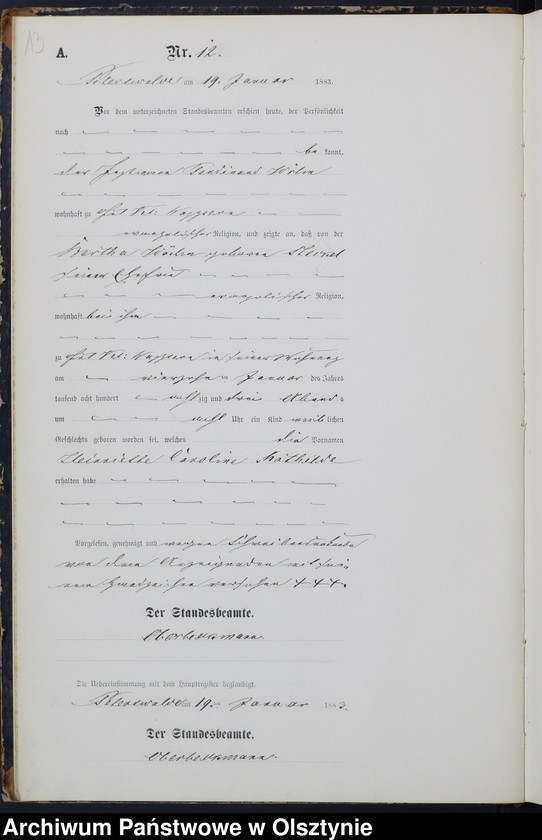 13
A. Nr. 12.
Peterswalde am 19. Januar 1883.
Vor dem unterzeichneten Standesbeamten erschien heute, der Persönlichkeit
nach
be kannt,
der Ferdinand
wohnhaft zu
evangelischer Religion, und zeigte an, daß von der
Bertha geborene
seiner Ehefrau
evangelischer Religion,
wohnhaft bei ihm
zu in seiner Wohnung
am vierzehn ten Januar des Jahres
tausend acht hundert acht zig und drei Abends
um acht Uhr ein Kind weib lichen
Geschlechts geboren worden sei, welches die Vornamen
Henriette Caroline Mathilde
erhalten habe
Vorgelesen, genehmigt und wegen
von dem Anzeigenden mit sei=
nem Handzeichen versehen +++.
Der Standesbeamte.
Die Uebereinstimmung mit dem Hauptregister beglaubigt.
Peterswalde am 19ten Januar 1883.
Der Standesbeamte.
Archiwum Państwowe w Olsztynie